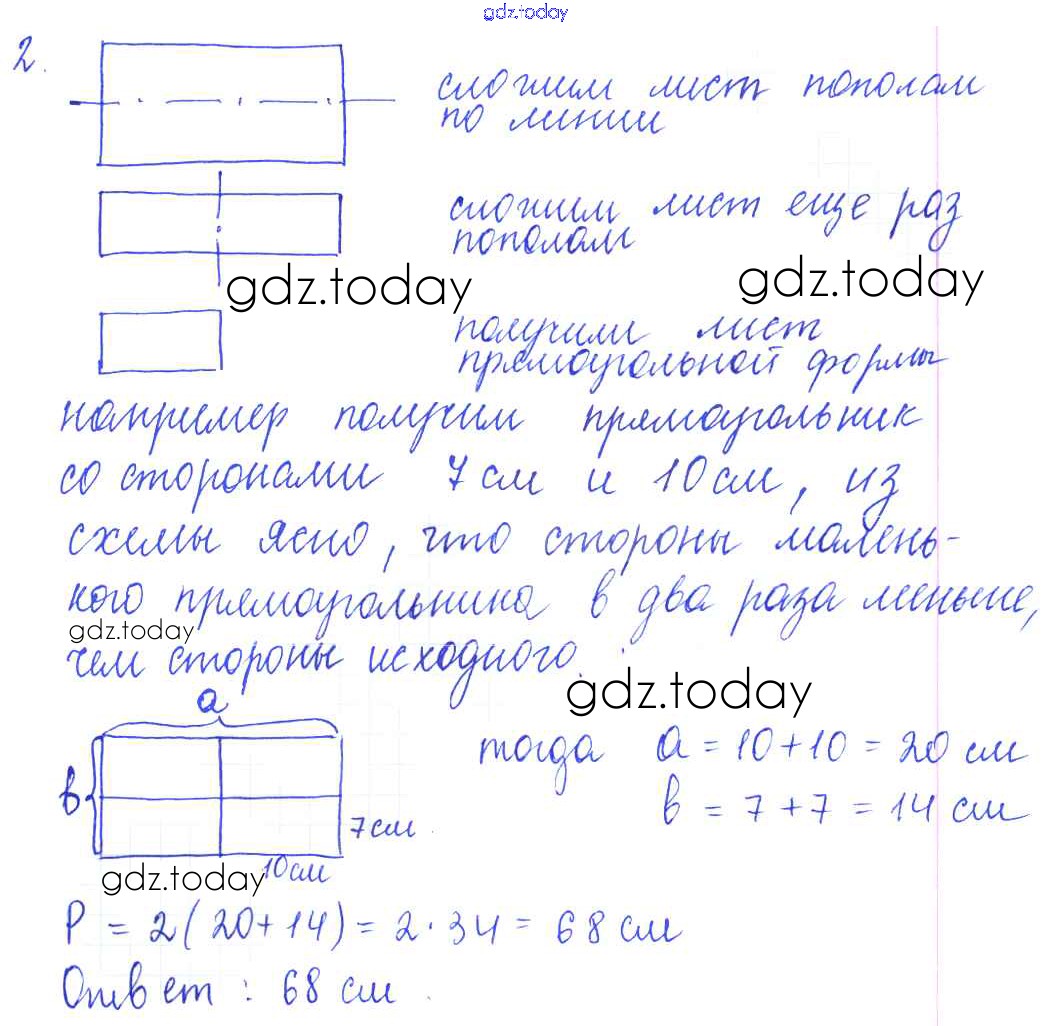 gdz.today
2.
сложим лист пополам
по линии
сложим лист еще раз
пополам
gdz.today gdz.today
получили лист
прямоугольной формы
например получим прямоугольник
со сторонами 7 см и 10 см, из
схемы ясно, что стороны малень-
кого прямоугольника в два раза меньше,
gdz.today
чем стороны исходного.
gdz.today
a
тогда a = 10 + 10 = 20 см
в
в = 7 + 7 = 14 см
7 см
10 см
gdz.today
P = 2(20+14) = 2·34 = 68 см
Ответ: 68 см.